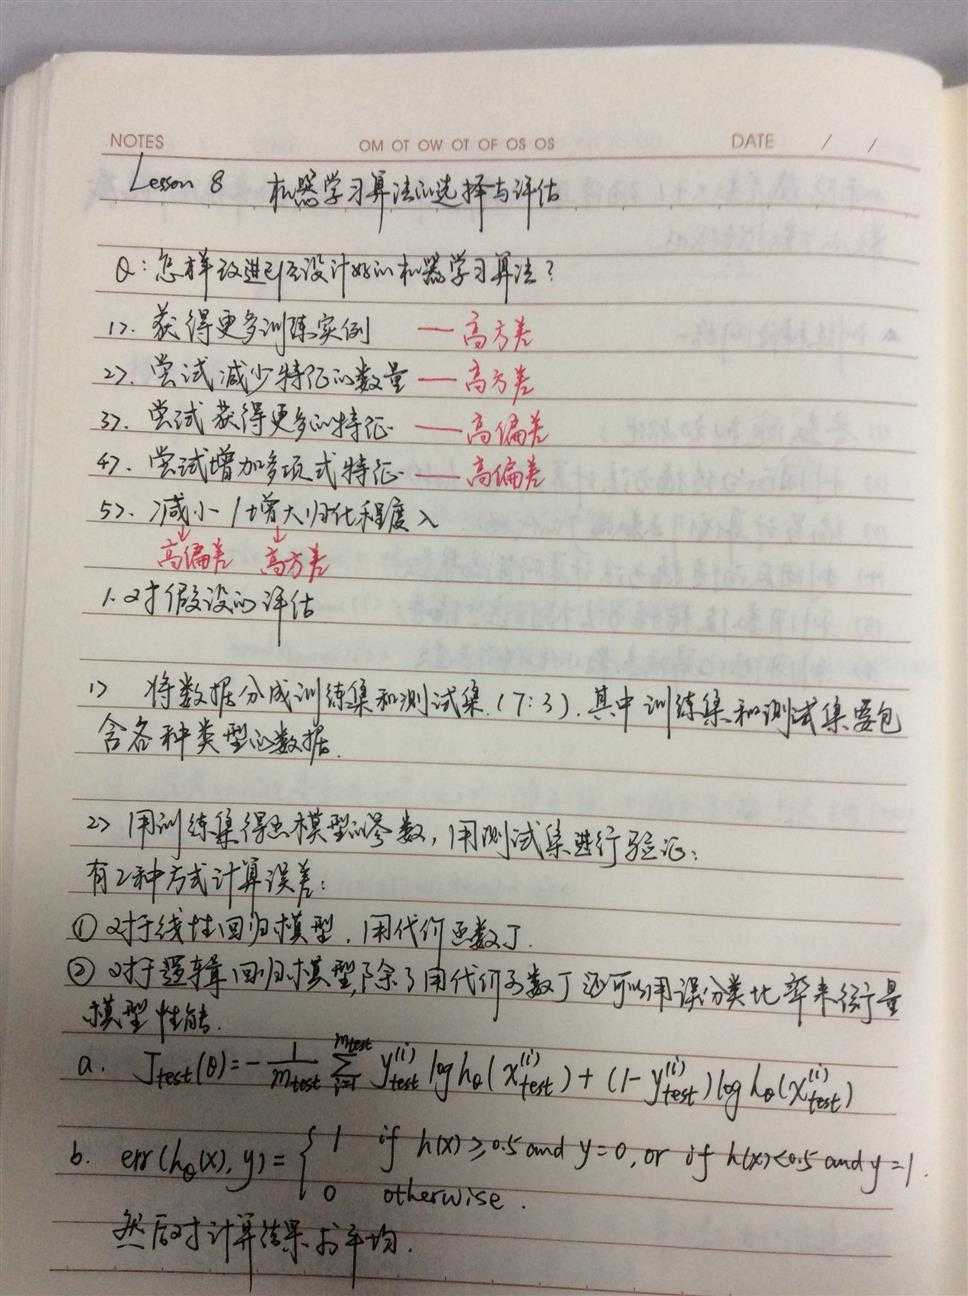 NOTES OM OT OW OT OF OS OS DATE / /
Lesson 8 机器学习算法的选择与评估
Q: 怎样改进已经设计好的机器学习算法?
1>. 获得更多训练实例 — 高方差
2>. 尝试减少特征的数量 — 高方差
3>. 尝试获得更多的特征 — 高偏差
4>. 尝试增加多项式特征 — 高偏差
5>. 减小/增大归化程度 λ
↓ ↓
高偏差 高方差
1. 对假设的评估
1> 将数据分成训练集和测试集(7:3).其中训练集和测试集要包
含各种类型的数据.
2> 用训练集得出模型的参数,用测试集进行验证:
有2种方式计算误差:
① 对于线性回归模型,用代价函数J.
② 对于逻辑回归模型,除了用代价函数J还可以用误分类比率来衡量
模型性能.
a. J_test(θ) = -\frac{1}{m_test} \sum_{i=1}^{m_test} y_{test}^{(i)} log h_θ(x_{test}^{(i)}) + (1-y_{test}^{(i)}) log h_θ(x_{test}^{(i)})
b. err(h_θ(x), y) = { 1 if h(x) ≥ 0.5 and y=0, or if h(x)<0.5 and y=1.
0 otherwise.
然后对计算结果求平均.